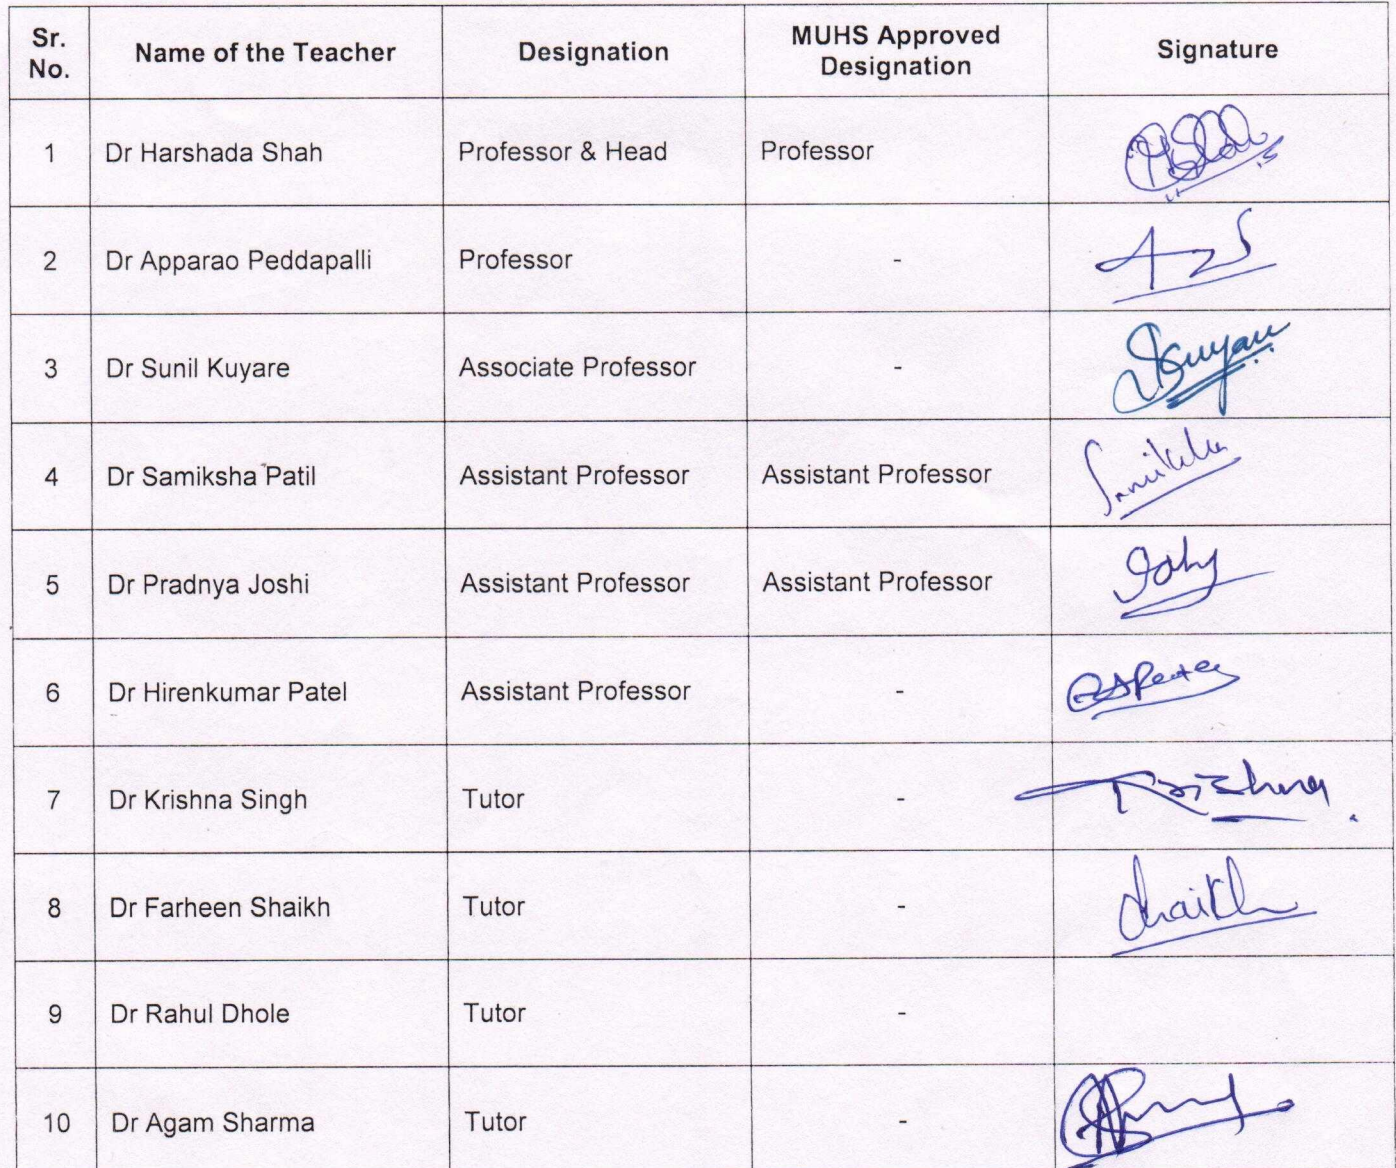 Sr. No. Name of the Teacher Designation MUHS Approved Designation Signature
1 Dr Harshada Shah Professor & Head Professor
2 Dr Apparao Peddapalli Professor -
3 Dr Sunil Kuyare Associate Professor - SKuyare
4 Dr Samiksha Patil Assistant Professor Assistant Professor Samiksha
5 Dr Pradnya Joshi Assistant Professor Assistant Professor Joshi
6 Dr Hirenkumar Patel Assistant Professor -
7 Dr Krishna Singh Tutor - Krishna
8 Dr Farheen Shaikh Tutor - Shaikh
9 Dr Rahul Dhole Tutor -
10 Dr Agam Sharma Tutor -